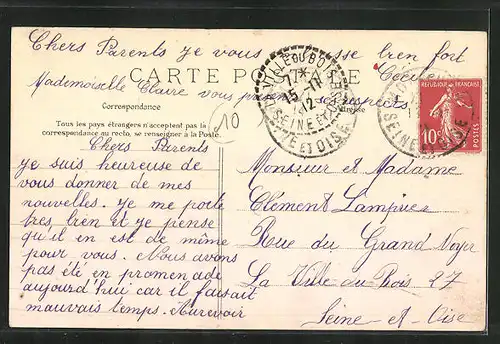 Chers Parents je vous embrasse bien fort
Cécile
CARTE POSTALE
Mademoiselle Claire vous présente ses respects
Correspondance
Adresse
Tous les pays étrangers n'acceptent pas la
correspondance au recto, se renseigner à la Poste.
10
Chers Parents
je suis heureuse de
vous donner de mes
nouvelles. Je me porte
très bien et je pense
qu'il en est de même
pour vous. Nous avons
pas été en promenade
aujourd'hui car il faisait
mauvais temps. Aurevoir
Monsieur et Madame
Clément
Rue du Grand Noyer
La Ville du Bois 27
Seine-et-Oise
LA VILLE DU BOIS
17*
15-11
12
SEINE ET OISE
REPUBLIQUE FRANCAISE
10c
POSTES
SEINE ET OISE